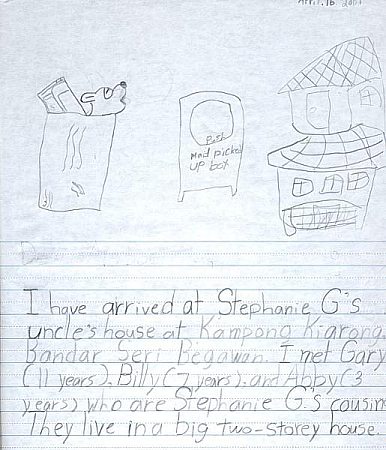 April. 16 2001
Post
Mail picked
up box
I have arrived at Stephanie G's
uncle's house at Kampong Kiarong,
Bandar Seri Begawan. I met Gary
(11 years), Billy (7 years), and Abby (3
years) who are Stephanie G.'s cousin
They live in a big two-storey house.